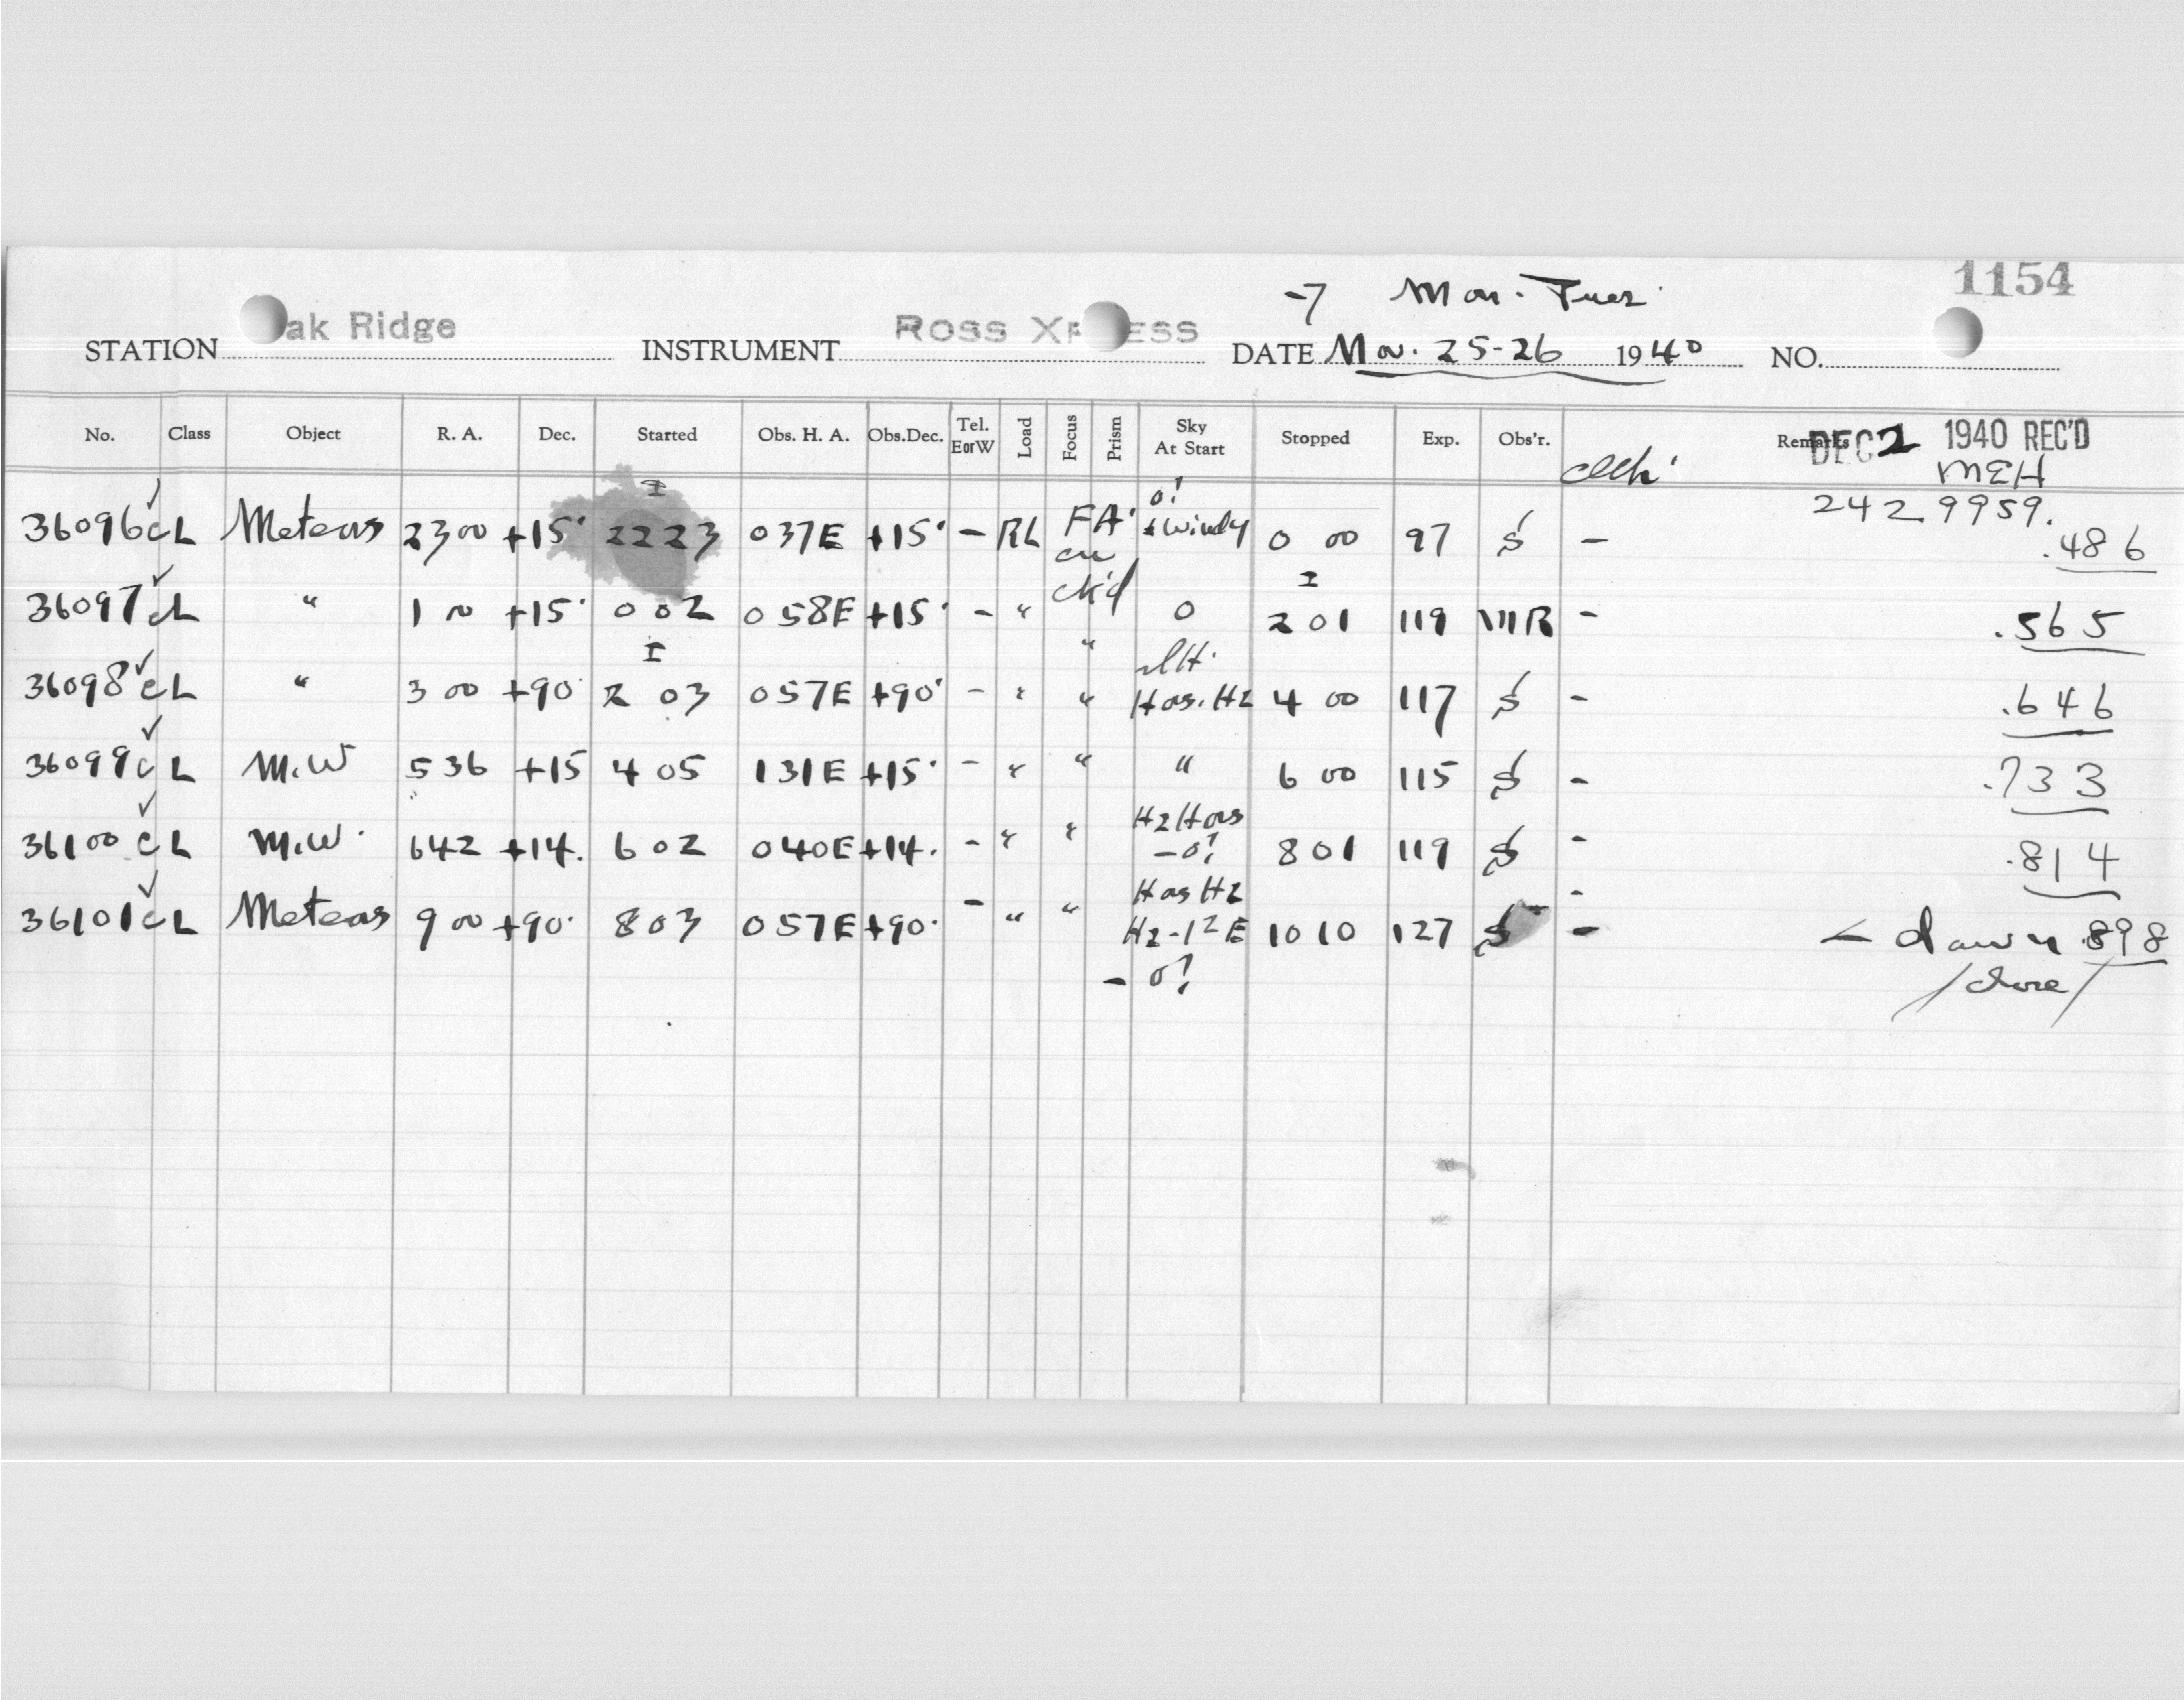 1154
-7 Mon. Tues.
STATION Oak Ridge INSTRUMENT ROSS XPRESS DATE Nov. 25-26 1940 NO.
No. Class Object R. A. Dec. Started Obs. H. A. Obs.Dec. Tel. EorW Load Focus Prism Sky At Start Stopped Exp. Obs'r. Remarks
DEC 2 1940 REC'D
MEH
242 9959.
36096 ✓ CL Meteors 23 00 +15° I 22 23 0 37E +15° - RL FA. cu ck'd o! + windy 0 00 97 S - .486
36097 ✓ CL " 1 00 +15° 0 02 0 58E +15° - " " 0 I 2 01 119 MR - .565
36098 ✓ CL " 3 00 +90° I 2 03 0 57E +90° - " " slH. Has. Hz 4 00 117 S - .646
36099 ✓ CL M.W 5 36 +15 4 05 1 31E +15° - " " " 6 00 115 S - .733
36100 ✓ CL M.W. 6 42 +14. 6 02 0 40E +14. - " " Hz Has - o! 8 01 119 S - .814
36101 ✓ CL Meteors 9 00 +90° 8 03 0 57E +90° - " " Has Hz Hz-12 E - o! 10 10 127 S - - dawn .898